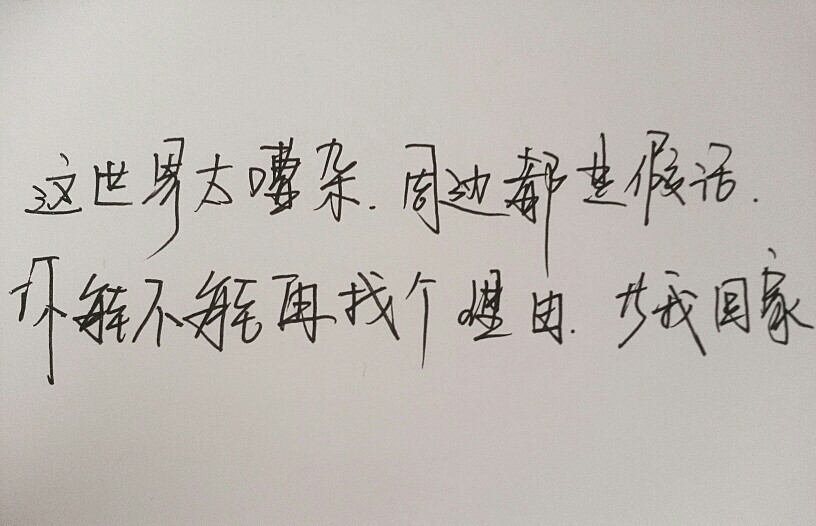 这世界太嘈杂.周边都是假话.
你能不能再找个理由.与我回家